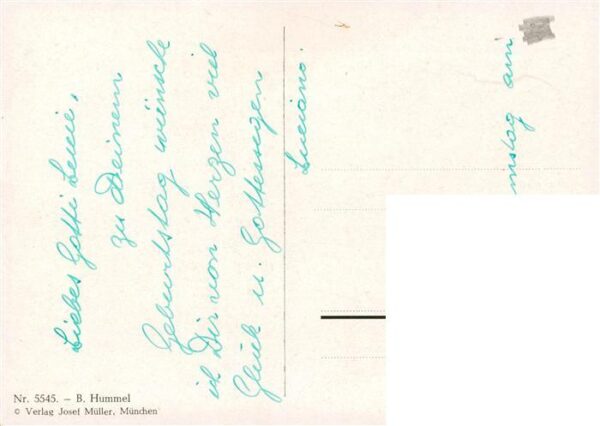 Liebes Gotti Lenie,
zu Deinem
Geburtstag wünsche
ich Dir von Herzen viel
Glück u. Gottessegen
Luciano.
mstag ein
Nr. 5545. – B. Hummel
© Verlag Josef Müller, München